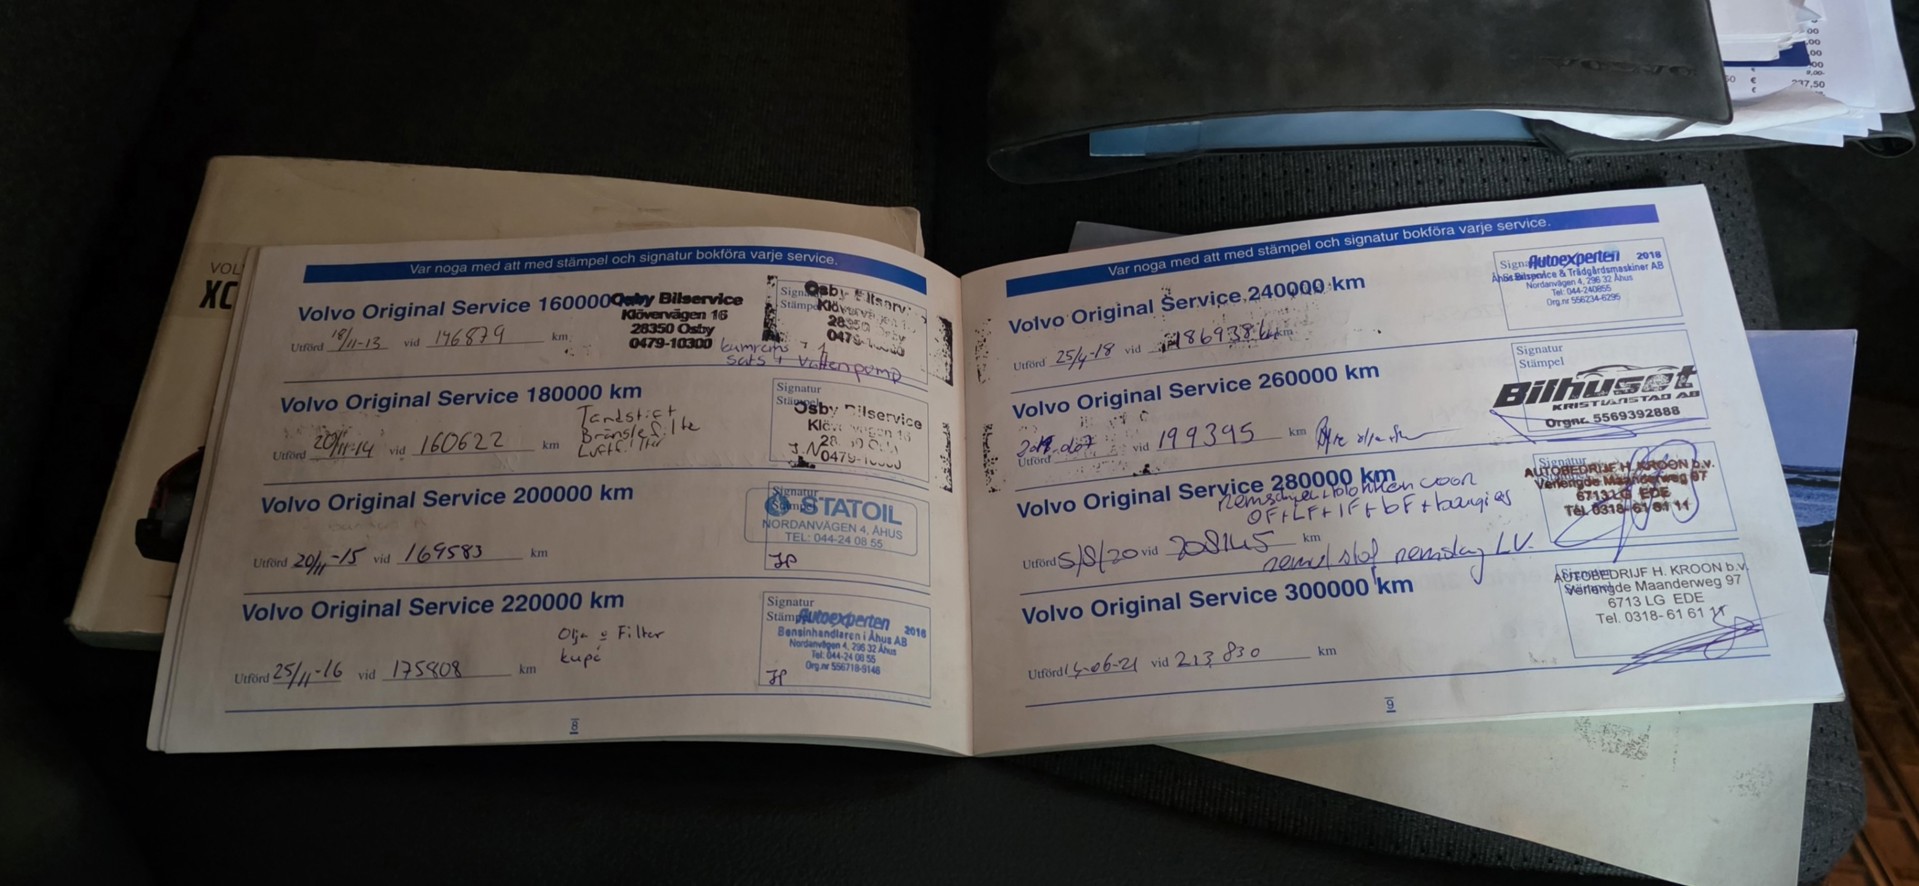 XC
VOLVO
237,50
Var noga med att med stämpel och signatur bokföra varje service.
Volvo Original Service 160000
Osby Bilservice
Klövervägen 16
28350 Osby
0479-10300
Signatur
Stämpel
Osby Bilserv
28350
0479-10300
Utförd 18/11-13 vid 146879 km
kamrems
sats + Vattenpump
Volvo Original Service 180000 km
Tändstift
Bränslefilter
Luftfilter
Signatur
Stämpel
Osby Bilservice
0479-10300
Utförd 20/11-14 vid 160622 km
Volvo Original Service 200000 km
Signatur
Stämpel
STATOIL
NORDANVÄGEN 4, ÅHUS
TEL: 044-24 08 55
Utförd 20/11-15 vid 169583 km
Volvo Original Service 220000 km
Olja o Filter
kupé
Signatur
Stämpel
Autoexperten 2016
Bensinhandlaren i Åhus AB
Nordanvägen 4, 296 32 Åhus
Tel: 044-24 08 55
Org.nr 556718-9146
Utförd 25/11-16 vid 175808 km
8
Var noga med att med stämpel och signatur bokföra varje service.
Volvo Original Service 240000 km
Autoexperten 2018
Åhus Bilservice & Trädgårdsmaskiner AB
Nordanvägen 4, 296 32 Åhus
Tel: 044-240855
Org.nr 556234-6295
Utförd 25/4-18 vid 186938 km
Volvo Original Service 260000 km
Signatur
Stämpel
Bilhuset
KRISTIANSTAD AB
Orgnr. 5569392888
Utförd vid 199395 km
Volvo Original Service 280000 km
remschijven + blokken voor
OF + LF + IF + bF + bougies
Signatur
AUTOBEDRIJF H. KROON b.v.
Verlengde Maanderweg 97
6713 LG EDE
Tel. 0318-61 61 11
Utförd 5/8/20 vid 208145 km
remvlstof remslang LV.
Volvo Original Service 300000 km
Signatur
Stämpel
AUTOBEDRIJF H. KROON b.v.
Verlengde Maanderweg 97
6713 LG EDE
Tel. 0318- 61 61 11
Utförd 14-06-21 vid 213830 km
9